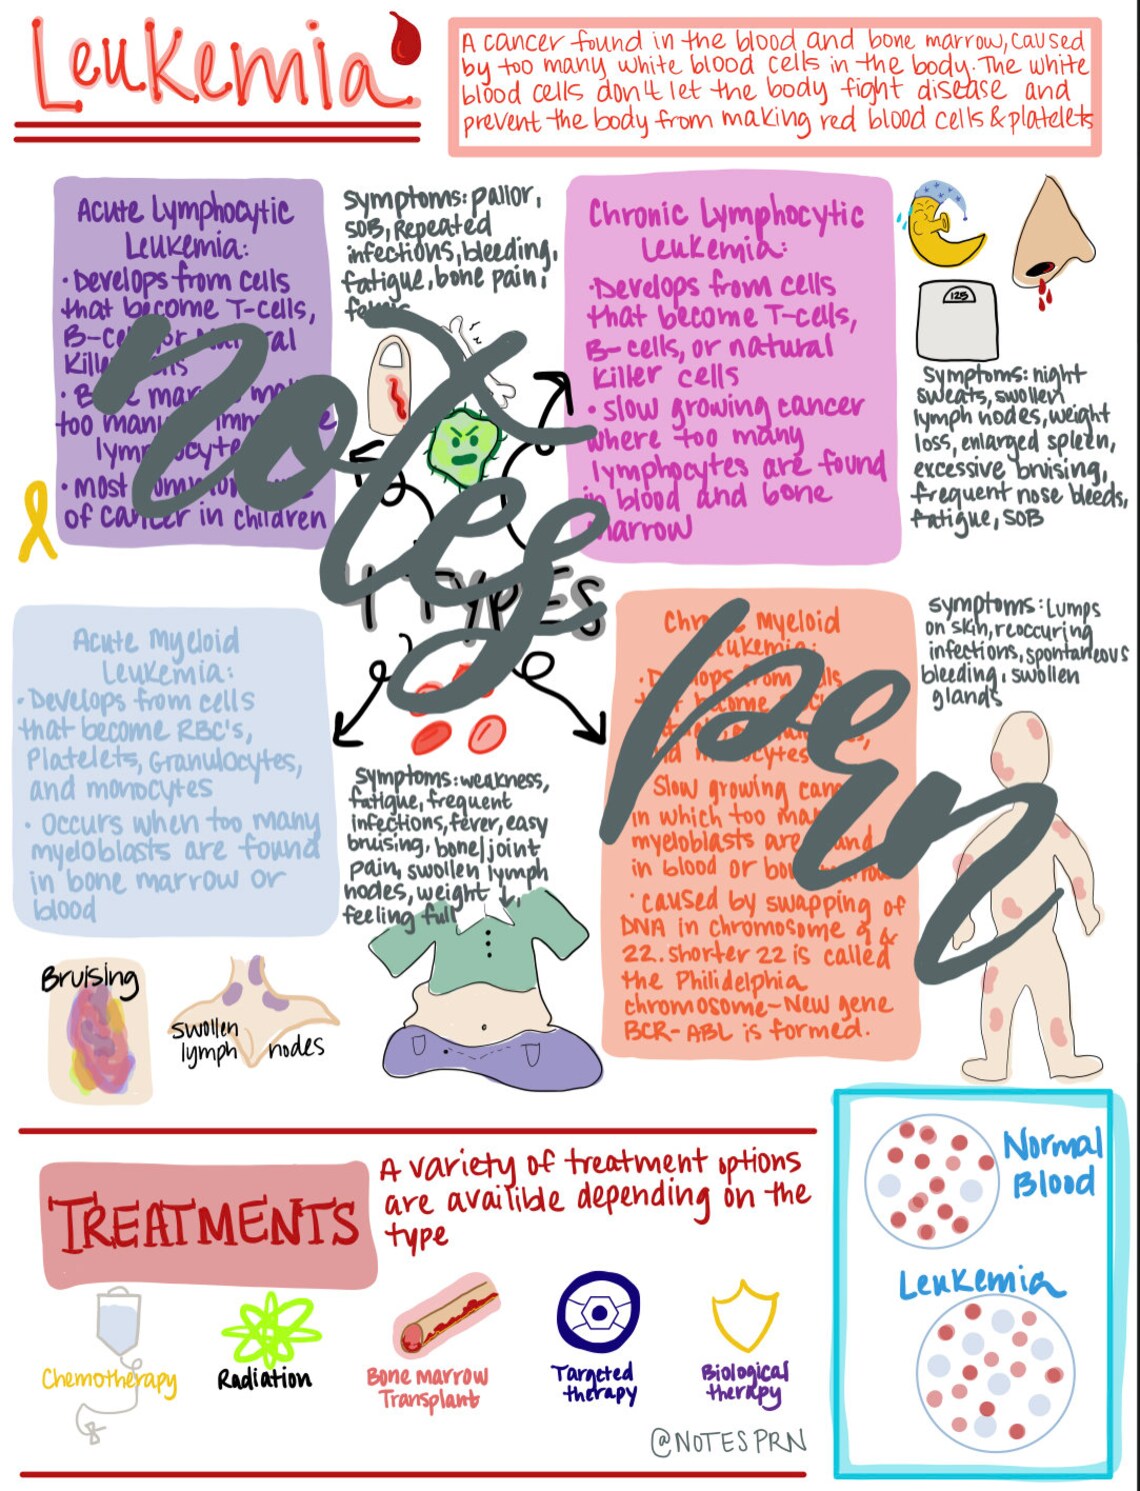 Leukemia
A cancer found in the blood and bone marrow, caused
by too many white blood cells in the body. The white
blood cells don't let the body fight disease and
prevent the body from making red blood cells & platelets
Acute Lymphocytic
Leukemia:
• Develops from cells
that become T-cells,
B-cells or Natural
Killer cells
• Bone marrow makes
too many immature
lymphocytes
• most common type
of cancer in children
Symptoms: pallor,
SOB, Repeated
infections, bleeding,
fatigue, bone pain,
fevers
Chronic Lymphocytic
Leukemia:
• Develops from cells
that become T-cells,
B-cells, or natural
killer cells
• Slow growing cancer
where too many
lymphocytes are found
in blood and bone
marrow
125
Symptoms: night
sweats, swollen
lymph nodes, weight
loss, enlarged spleen,
excessive bruising,
frequent nose bleeds,
fatigue, SOB
4 TYPES
notes
prn
Acute Myeloid
Leukemia:
• Develops from cells
that become RBC's,
Platelets, Granulocytes,
and monocytes
• Occurs when too many
myeloblasts are found
in bone marrow or
blood
Symptoms: weakness,
fatigue, frequent
infections, fever, easy
bruising, bone/joint
pain, swollen lymph
nodes, weight ↓,
feeling full
Chronic Myeloid
Leukemia:
• Develops from cells
that become
and monocytes
Slow growing cancer
in which too many
myeloblasts are found
in blood or bone marrow
• caused by swapping of
DNA in chromosome 9 &
22. shorter 22 is called
the Philidelphia
chromosome - New gene
BCR-ABL is formed.
Symptoms: Lumps
on skin, reoccuring
infections, spontaneous
bleeding, swollen
glands
Bruising
swollen
lymph nodes
TREATMENTS
A variety of treatment options
are availible depending on the
type
Chemotherapy
Radiation
Bone marrow
Transplant
Targeted
therapy
Biological
therapy
@NOTESPRN
Normal
Blood
Leukemia